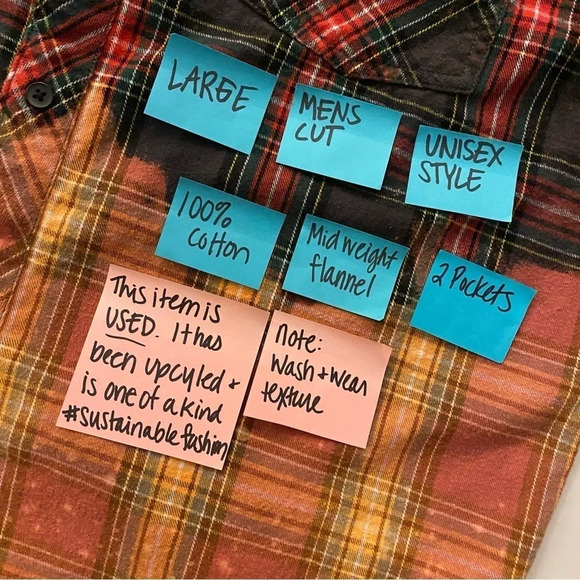 LARGE
MENS
CUT
UNISEX
STYLE
100%
Cotton
Mid weight
flannel
2 Pockets
This item is
USED. It has
been upcyled +
is one of a kind
#sustainablefashion
note:
Wash + Wear
texture